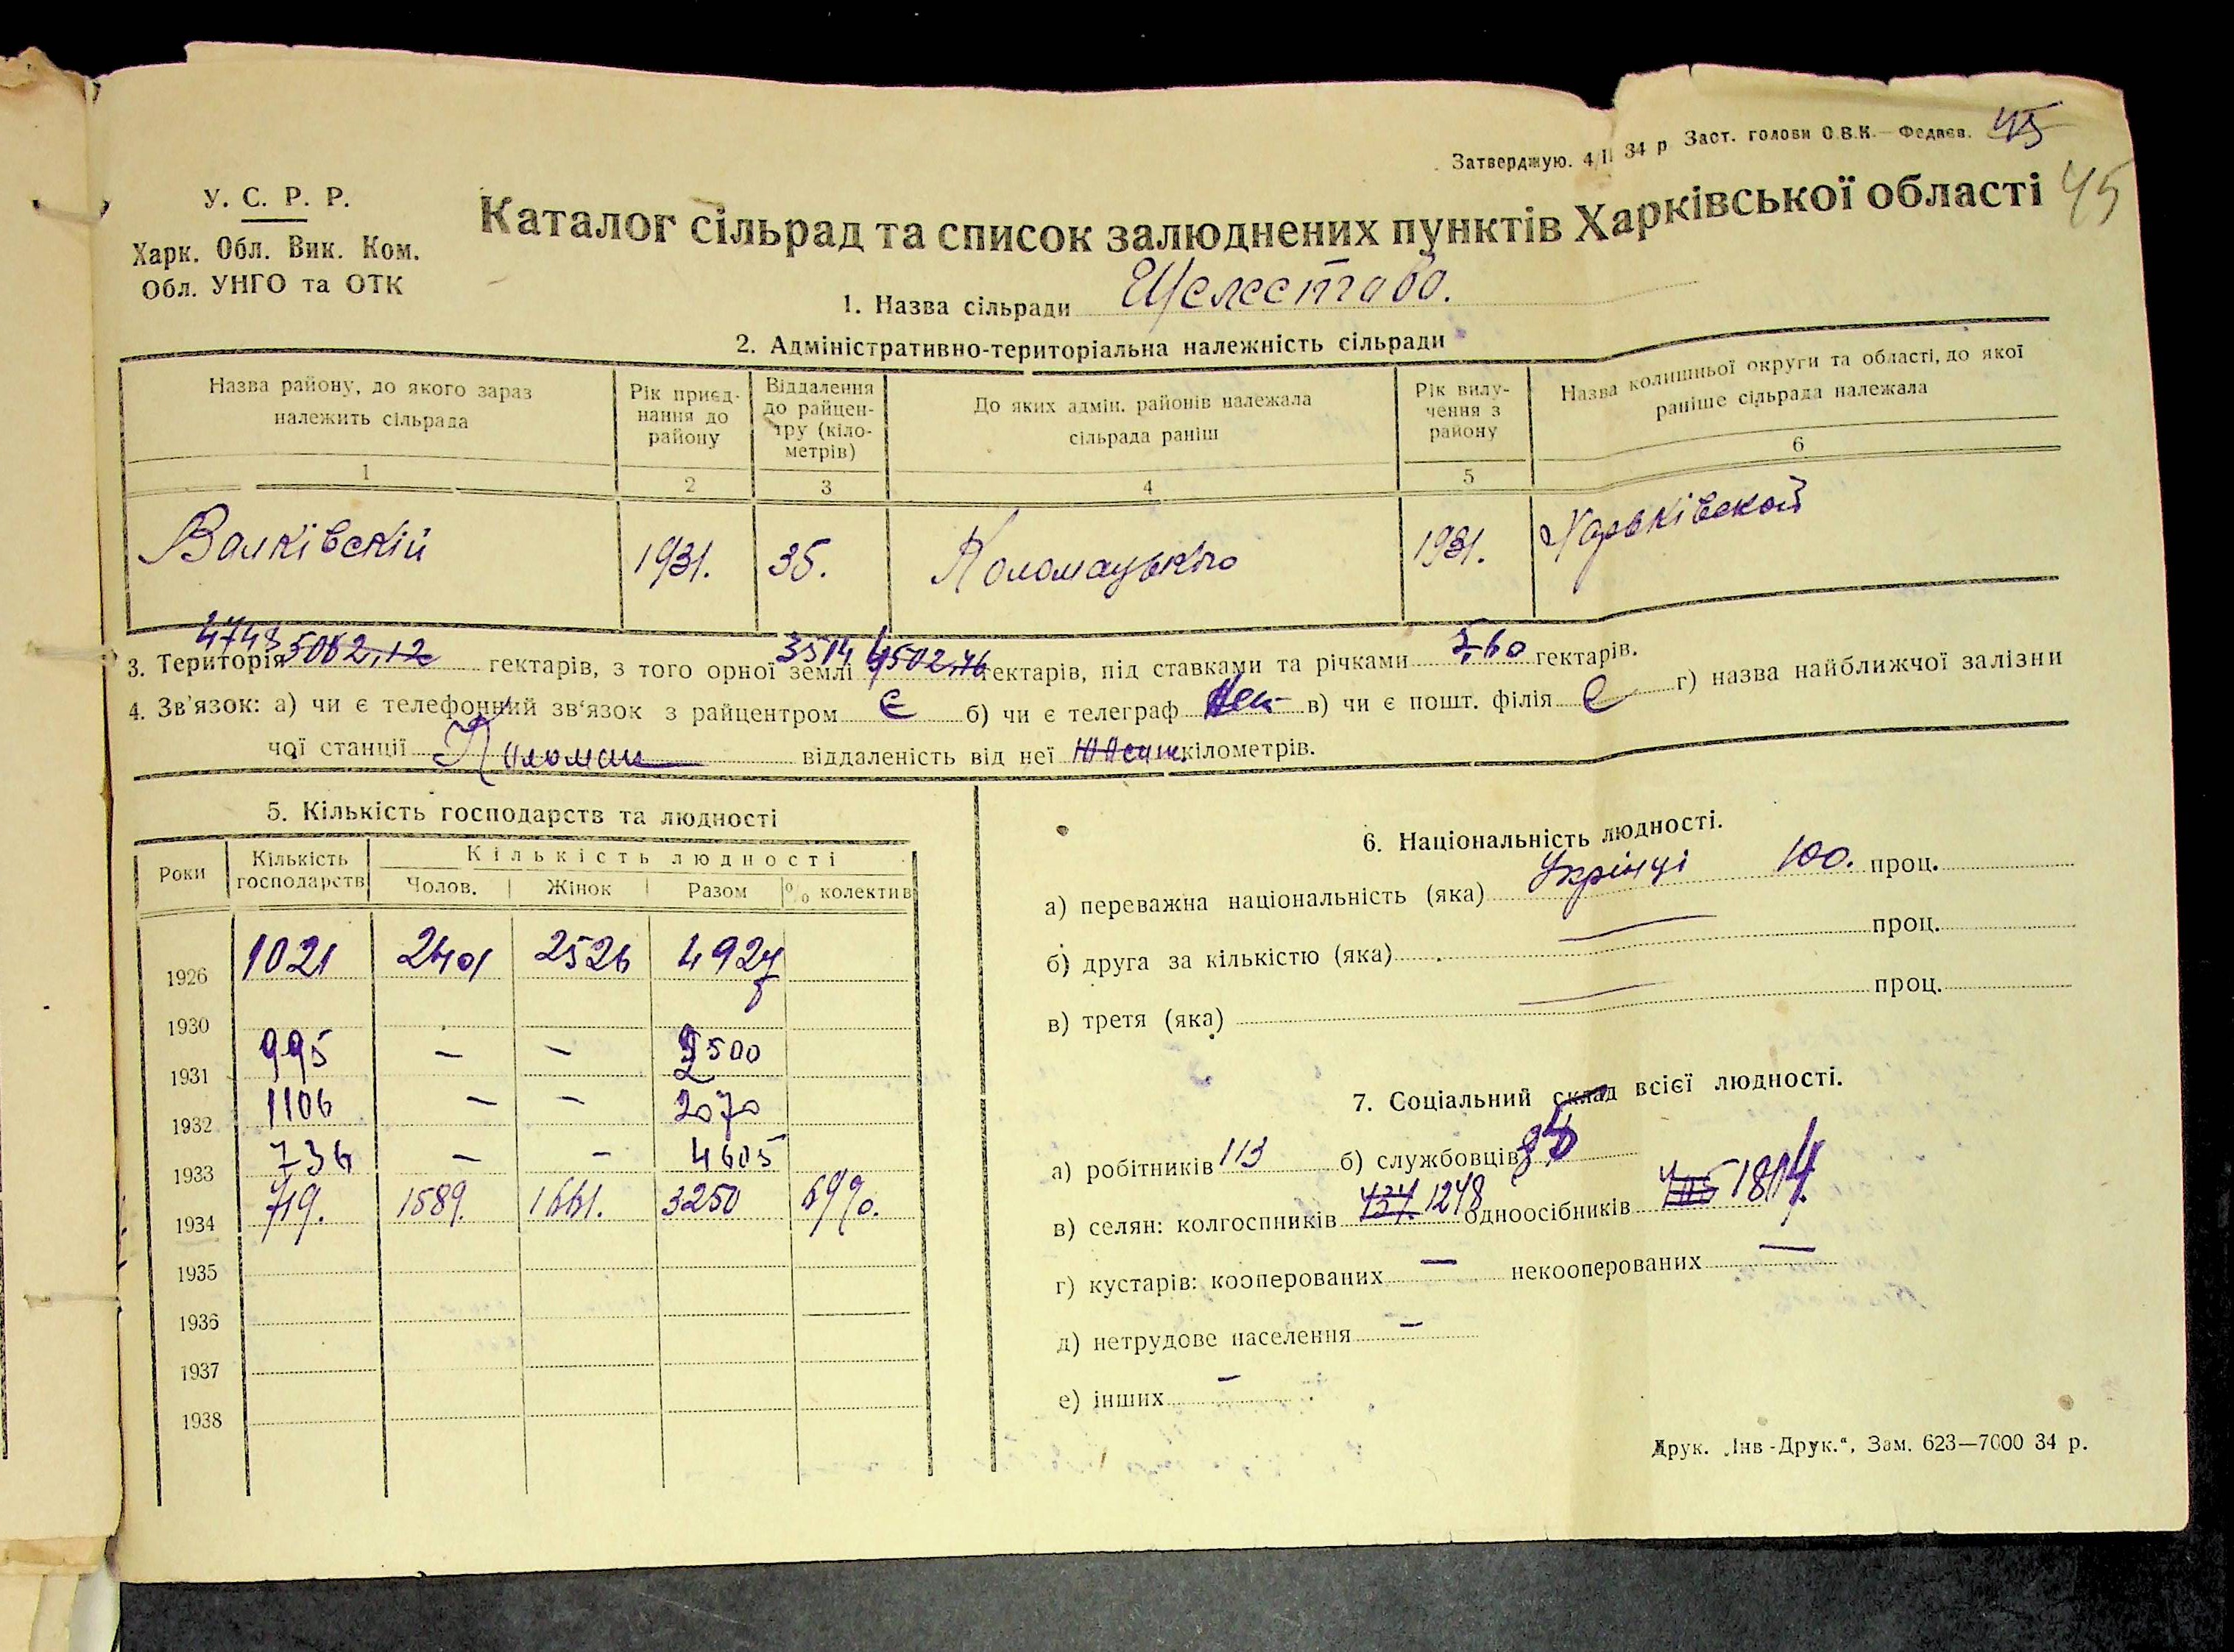 Затверджую. 4/II 34 р Заст. голови О.В.К.— Федяєв. 45
45
У. С. Р. Р.
Харк. Обл. Вик. Ком.
Обл. УНГО та ОТК
Каталог сільрад та список залюднених пунктів Харківської області
1. Назва сільради Шелестово.
2. Адміністративно-територіальна належність сільради
Назва району, до якого зараз належить сільрада
Рік приєд-нання до району
Віддалення до райцен-тру (кіло-метрів)
До яких адмін. районів належала сільрада раніш
Рік вилу-чення з району
Назва колишньої округи та області, до якої раніше сільрада належала
1 2 3 4 5 6
Валківскій 1931. 35. Коломацького 1931. Харьківской
4748 3514
3. Територія 5062,12 гектарів, з того орної землі 4502,76 гектарів, під ставками та річками 5,60 гектарів.
4. Зв'язок: а) чи є телефонний зв'язок з райцентром Є б) чи є телеграф в) чи є пошт. філія Є г) назва найближчої залізни
чої станції Коломак віддаленість від неї кілометрів.
5. Кількість господарств та людності
Роки Кількість господарств Кількість людності
Чолов. Жінок Разом % колектив
1926 1021 2401 2526 4927
1930
1931 995 — — 500
1932 1106 — — 2070
1933 736 — — 4605
1934 719. 1589. 1661. 3250 69%.
1935
1936
1937
1938
6. Національність людності.
а) переважна національність (яка) Укрінці 100. проц.
б) друга за кількістю (яка) — проц.
в) третя (яка) — проц.
7. Соціальний склад всієї людності.
а) робітників 113 б) службовців 85
в) селян: колгоспників 1248 одноосібників 1804
г) кустарів: кооперованих — некооперованих —
д) нетрудове населення —
е) інших —
Друк. „Інв-Друк.“, Зам. 623—7000 34 р.